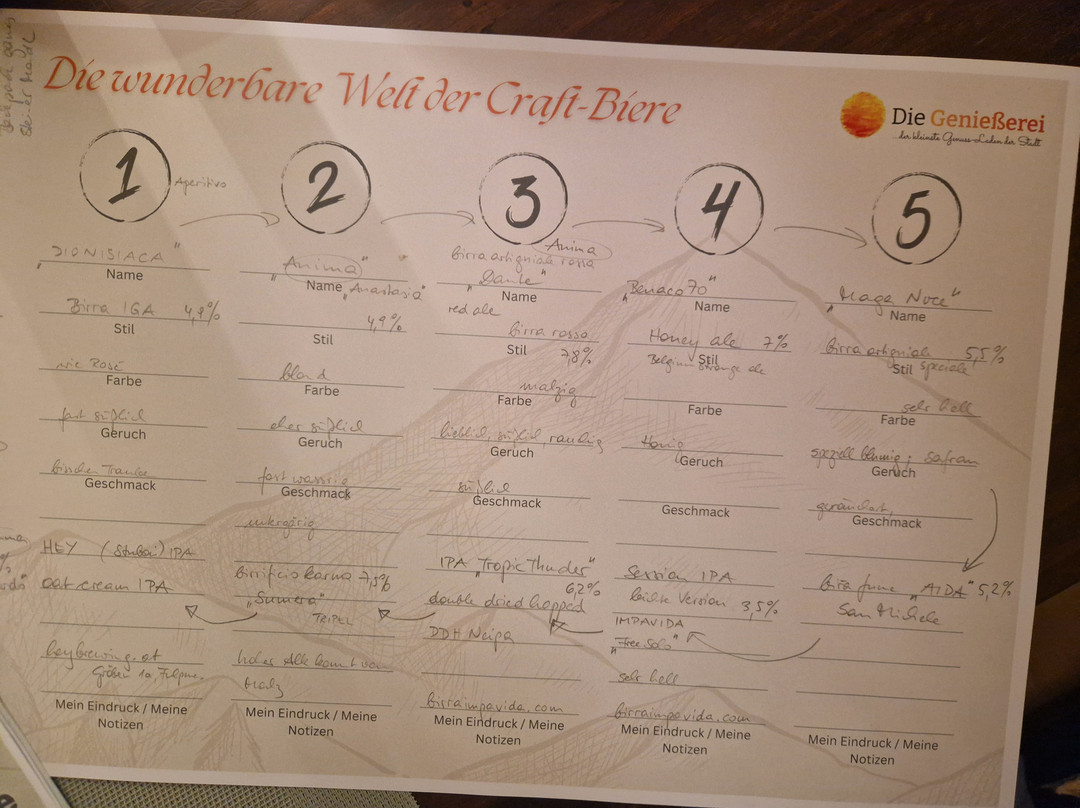 Die wunderbare Welt der Craft-Biere
Die Genießerei
der kleinste Genuss-Laden der Stadt
1
Aperitivo
"DIONISIACA"
Name
Birra IGA 4,9%
Stil
wie Rosé
Farbe
fast süßlich
Geruch
bisschen Traube
Geschmack
HEY (Stubai) IPA
oat cream IPA
heybrewing.at
Mein Eindruck / Meine
Notizen
2
"Anima"
Name
"Anastasia"
4,9%
Stil
blond
Farbe
eher süßlich
Geruch
fast wassrig
Geschmack
untergärig
Birrificio Karma 7,5%
"Sumera"
TRIPEL
hohes Alk kommt von
Mein Eindruck / Meine
Notizen
3
Anima
birra artigniale rossa
"Dante"
Name
red ale
birra rossa
Stil
7,8%
malzig
Farbe
lieblich, süßlich, rauchig
Geruch
süßlich
Geschmack
IPA "Tropic Thunder"
6,2%
double dried hopped
DDH Neipa
birraimpavida.com
Mein Eindruck / Meine
Notizen
4
"Benaco 70"
Name
Honey ale 7%
Stil
Belgium strong ale
Farbe
Honig
Geruch
Geschmack
Session IPA
leichte Version 3,5%
IMPAVIDA
"Free Solo"
sehr hell
birraimpavida.com
Mein Eindruck / Meine
Notizen
5
"Maga Noce"
Name
birra artigniale 5,5%
Stil
speciale
sehr hell
Farbe
speziell blumig; Safran
Geruch
geräuchert,
Geschmack
birra fiume "AIDA" 5,2%
San Michele
Mein Eindruck / Meine
Notizen